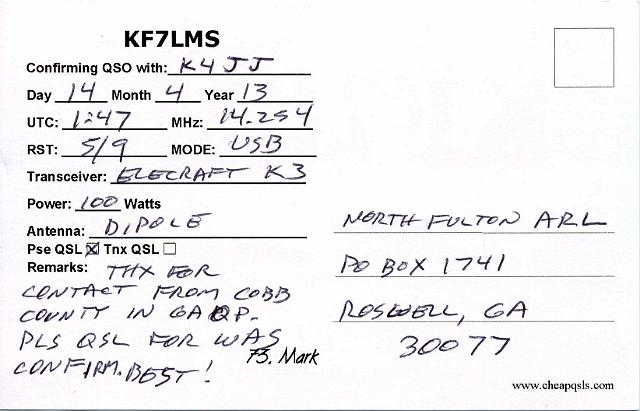 KF7LMS
Confirming QSO with: K4JJ
Day 14 Month 4 Year 13
UTC: 1:47 MHz: 14.254
RST: 5/9 MODE: USB
Transceiver: ELECRAFT K3
Power: 100 Watts
Antenna: DIPOLE
Pse QSL ☒ Tnx QSL ☐
Remarks: THX FOR
CONTACT FROM COBB
COUNTY IN GAQP.
PLS QSL FOR WAS
CONFIRM. BEST!
73. Mark
NORTH FULTON ARL
PO BOX 1741
ROSWELL, GA
30077
www.cheapqsls.com